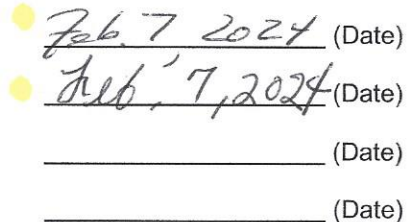 Feb. 7 2024 (Date)
Feb, 7, 2024 (Date)
(Date)
(Date)